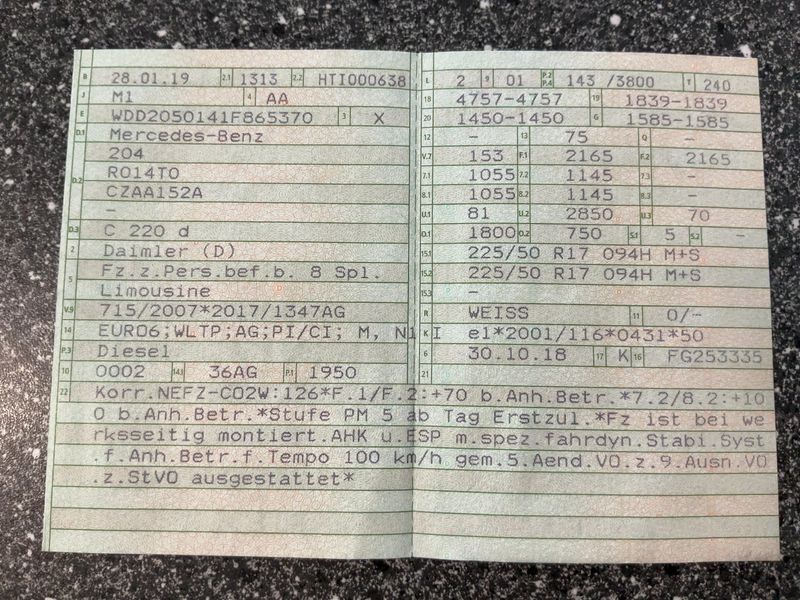 B 28.01.19 2.1 1313 2.2 HTI000638
J M1 4 AA
E WDD2050141F865370 3 X
D.1 Mercedes-Benz
204
D.2 R014T0
CZAA152A
-
D.3 C 220 d
2 Daimler (D)
5 Fz.z.Pers.bef.b. 8 Spl.
Limousine
V.9 715/2007*2017/1347AG
14 EURO6;WLTP;AG;PI/CI; M, N1 I
P.3 Diesel
10 0002 14.1 36AG P.1 1950
L 2 9 01 P.2 P.4 143 /3800 T 240
18 4757-4757 19 1839-1839
20 1450-1450 G 1585-1585
12 - 13 75 Q -
V.7 153 F.1 2165 F.2 2165
7.1 1055 7.2 1145 7.3 -
8.1 1055 8.2 1145 8.3 -
U.1 81 U.2 2850 U.3 70
O.1 1800 O.2 750 S.1 5 S.2 -
15.1 225/50 R17 094H M+S
15.2 225/50 R17 094H M+S
15.3 -
R WEISS 11 0/-
K e1*2001/116*0431*50
6 30.10.18 17 K 16 FG253335
21
22 Korr.NEFZ-CO2W:126*F.1/F.2:+70 b.Anh.Betr.*7.2/8.2:+10
0 b.Anh.Betr.*Stufe PM 5 ab Tag Erstzul.*Fz ist bei we
rksseitig montiert.AHK u.ESP m.spez.fahrdyn.Stabi.Syst
.f.Anh.Betr.f.Tempo 100 km/h gem.5.Aend.VO.z.9.Ausn.VO
.z.StVO ausgestattet*